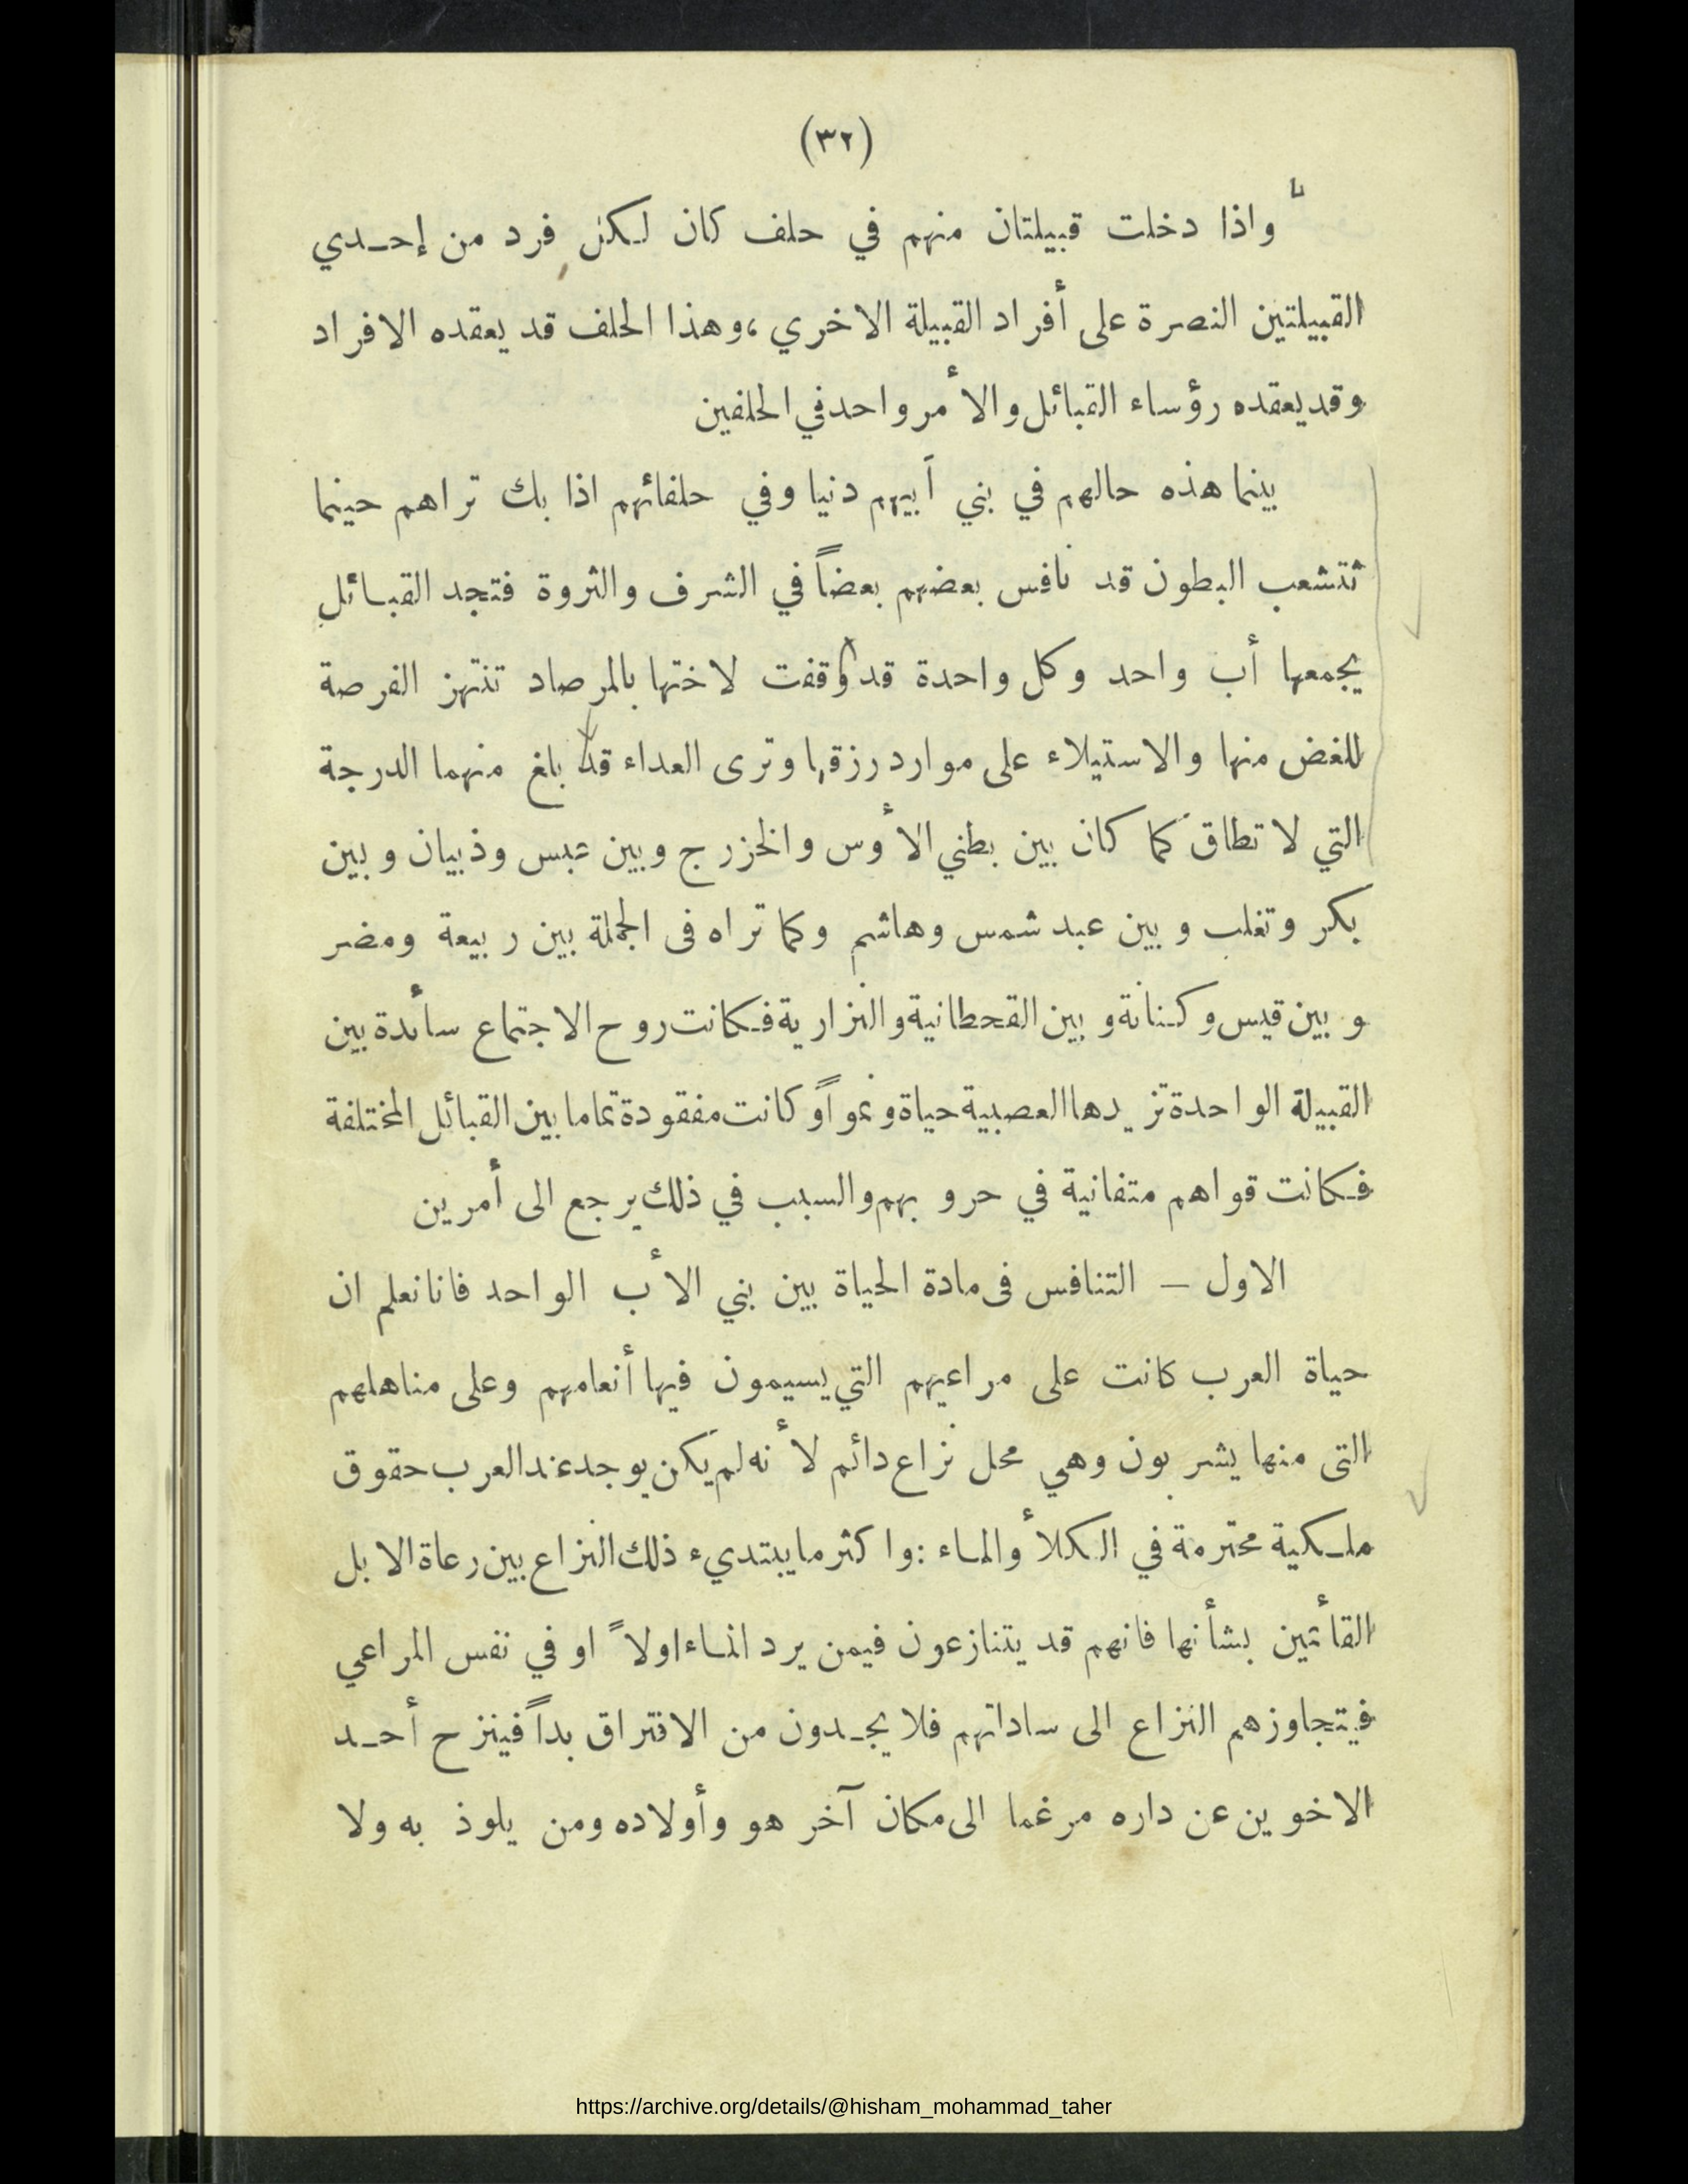 (٣٢)
واذا دخلت قبيلتان منهم في حلف كان لكل فرد من إحدي
القبيلتين النصرة على أفراد القبيلة الاخري ، وهذا الحلف قد يعقده الافراد
وقد يعقده رؤساء القبائل والأمر واحد في الحلفين
بينما هذه حالهم في بني أبيهم دنيا وفي حلفائهم اذا بك تراهم حينما
تتشعب البطون قد نافس بعضهم بعضاً في الشرف والثروة فتجد القبائل
يجمعها أب واحد وكل واحدة قد وقفت لاختها بالمرصاد تنتهز الفرصة
للغض منها والاستيلاء على موارد رزقها وترى العداء قد بلغ منهما الدرجة
التي لا تطاق كما كان بين بطني الأوس والخزرج وبين عبس وذبيان وبين
بكر وتغلب وبين عبد شمس وهاشم وكما تراه فى الجملة بين ربيعة ومضر
وبين قيس وكنانة وبين القحطانية والنزارية فكانت روح الاجتماع سأئدة بين
القبيلة الواحدة تزيدها العصبية حياة ونمواً وكانت مفقودة تماما بين القبائل المختلفة
فكانت قواهم متفانية في حروبهم والسبب في ذلك يرجع الى أمرين
الاول — التنافس فى مادة الحياة بين بني الأب الواحد فانا نعلم ان
حياة العرب كانت على مراعيهم التي يسيمون فيها أنعامهم وعلى مناهلهم
التى منها يشربون وهي محل نزاع دائم لأنه لم يكن يوجد عند العرب حقوق
ملكية محترمة في الكلأ والماء : واكثر ما يبتديء ذلك النزاع بين رعاة الابل
القأئمين بشأنها فانهم قد يتنازعون فيمن يرد الماء اولاً او في نفس المراعي
فيتجاوزهم النزاع الى ساداتهم فلا يجدون من الافتراق بداً فينزح أحد
الاخوين عن داره مرغما الى مكان آخر هو وأولاده ومن يلوذ به ولا
https://archive.org/details/@hisham_mohammad_taher